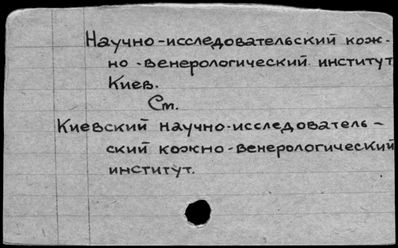 Научно-исследовательский кож-
но-венерологический институт
Киев.
См.
Киевский научно-исследователь-
ский кожно-венерологический
институт.